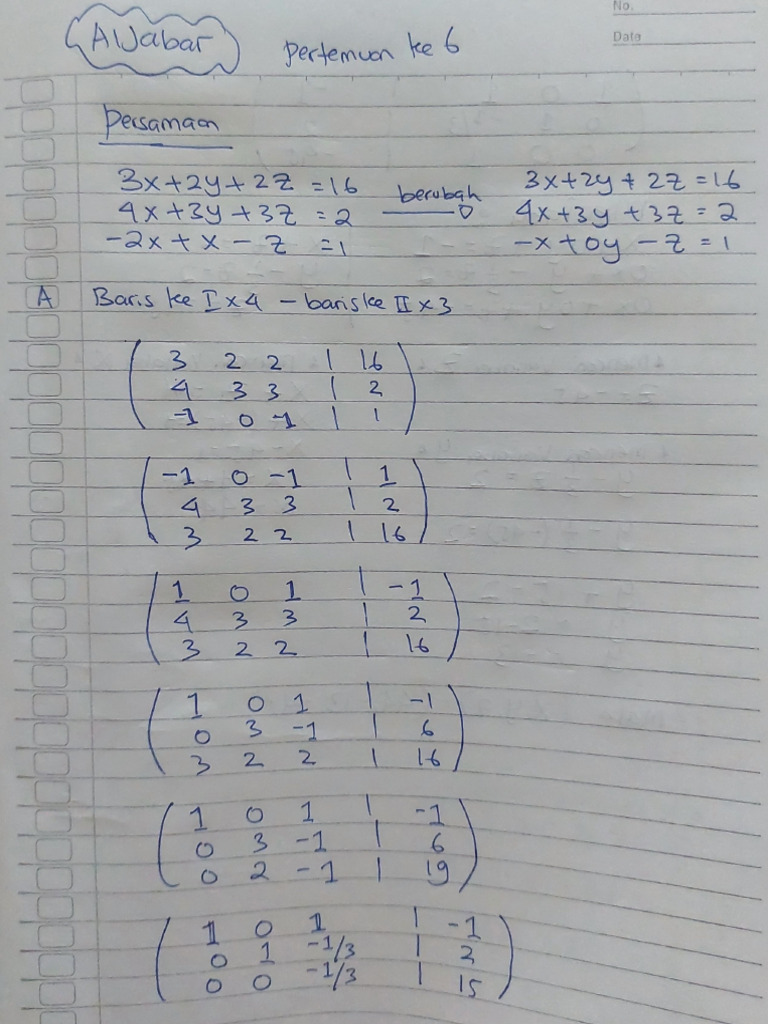 No.
Date
AlJabar
Pertemuan ke 6
Persamaan
3x+2y+2z =16 berubah 3x+2y+2z =16
4x+3y+3z =2 4x+3y+3z =2
-2x+x-z =1 -x+0y-z =1
A Baris ke I x4 - baris ke II x3
3 2 2 | 16
4 3 3 | 2
-1 0 -1 | 1
-1 0 -1 | 1
4 3 3 | 2
3 2 2 | 16
1 0 1 | -1
4 3 3 | 2
3 2 2 | 16
1 0 1 | -1
0 3 -1 | 6
3 2 2 | 16
1 0 1 | -1
0 3 -1 | 6
0 2 -1 | 19
1 0 1 | -1
0 1 -1/3 | 2
0 0 -1/3 | 15